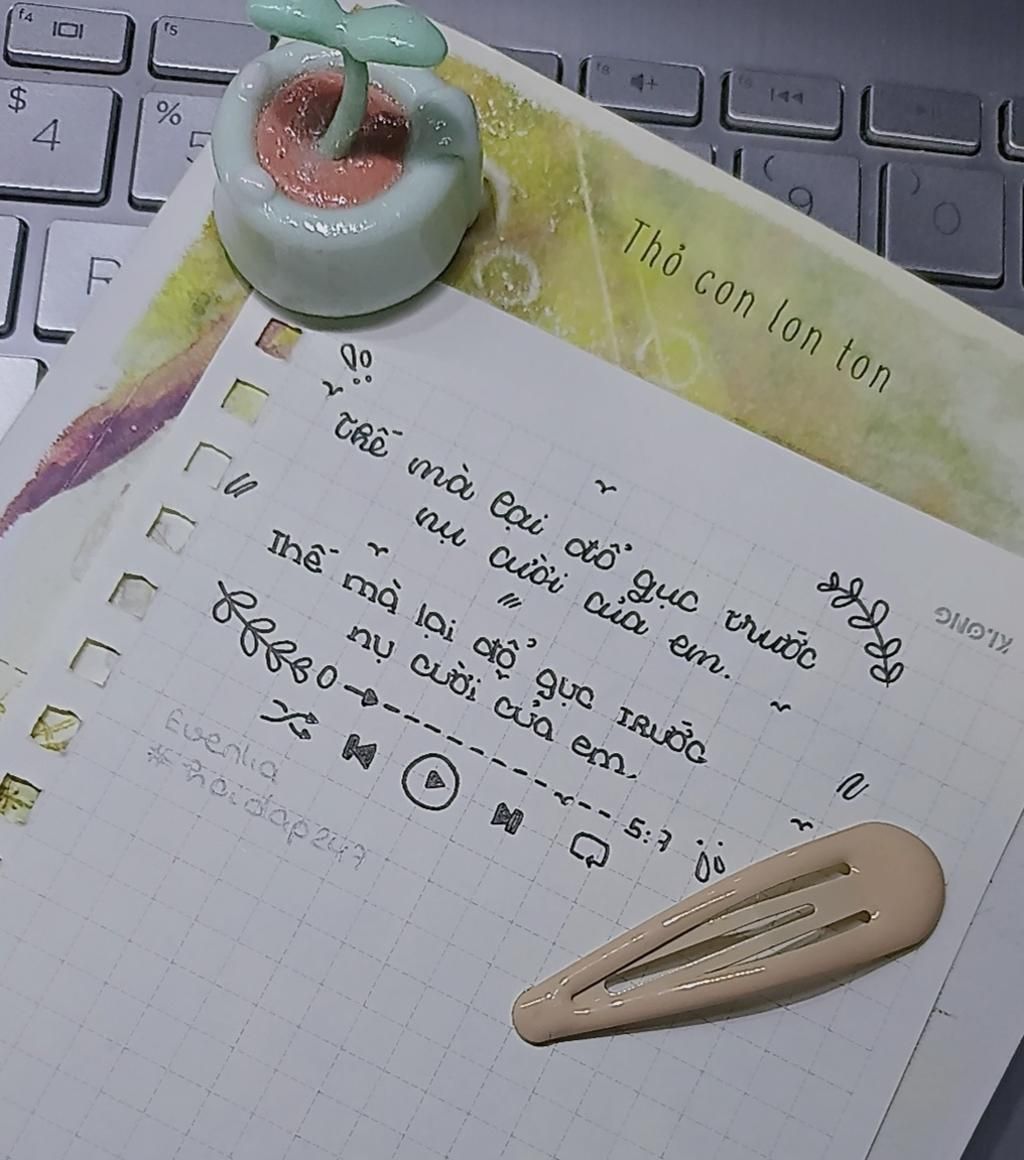 f4
f5
$
4
%
5
R
f8
(
9
)
0
Thỏ con lon ton
KLONG
Thế mà lại đổ gục trước
nụ cười của em.
Thế mà lại đổ gục trước
nụ cười của em.
5:7
Evenlia
#hoidap247